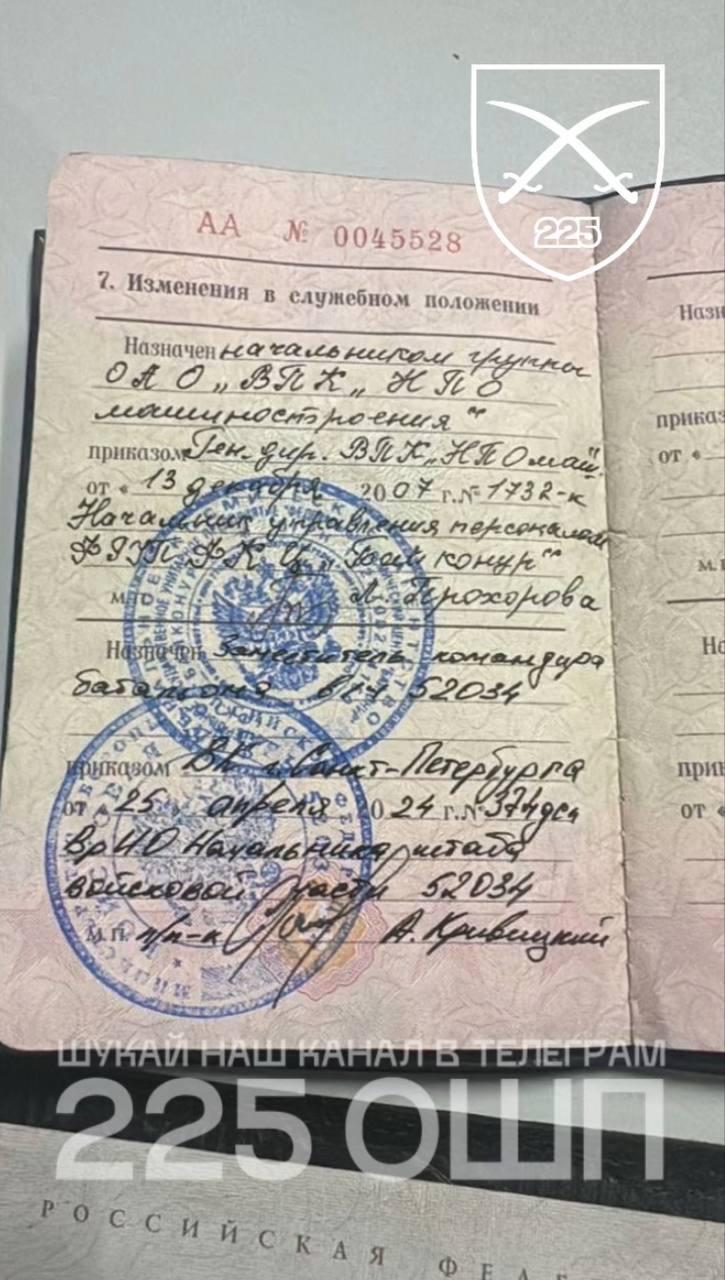 225
АА № 0045528
7. Изменения в служебном положении
Назначен начальником группы
ОАО „ВПК „НПО
машиностроения“
приказом Ген. дир. ВПК „НПОмаш“
от « 13 декабря 2007 г. № 1732-к
Начальник управления персоналом
ФГУП ФКЦ „Байконур“
Л. Прохорова
Назначен Заместитель командира
батальона в/ч 52034
приказом ВК г. Санкт-Петербурга
от 25 апреля 2024 г. № 37
ВрИО Начальника штаба
войсковой части 52034
М.П. п/п-к А. Кривицкий
Назн
приказ
от «
М.П
На
прин
от «
ШУКАЙ НАШ КАНАЛ В ТЕЛЕГРАМ
225 ОШП
РОССИЙСКАЯ ФЕД